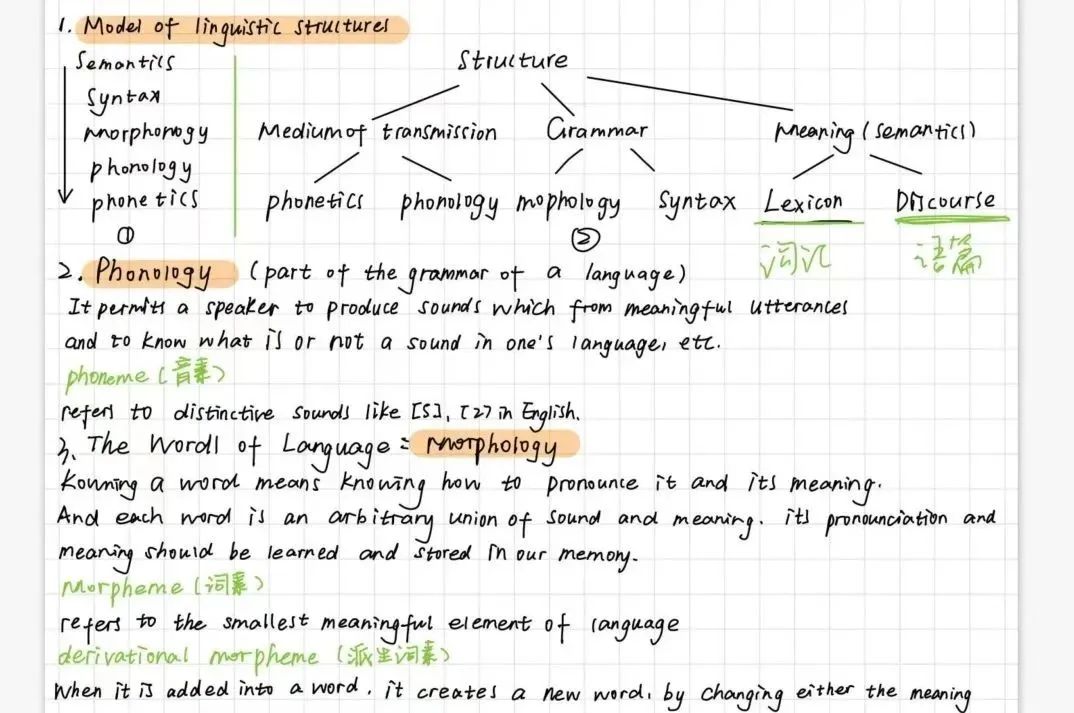 1. Model of linguistic structures
Semantics
Syntax
morphonogy
phonology
phonetics
①
Structure
Medium of transmission Grammar Meaning (semantics)
phonetics phonology mophology Syntax Lexicon Discourse
②
词汇 语篇
2. Phonology (part of the grammar of a language)
It permits a speaker to produce sounds which from meaningful utterances
and to know what is or not a sound in one's language, etc.
phoneme (音素)
refers to distinctive sounds like [S], [Z] in English.
3. The Words of Language: Morphology
Kouning a word means knowing how to pronounce it and its meaning.
And each word is an arbitrary union of sound and meaning. its pronounciation and
meaning should be learned and stored in our memory.
Morpheme (词素)
refers to the smallest meaningful element of language
derivational morpheme (派生词素)
When it is added into a word, it creates a new word, by changing either the meaning